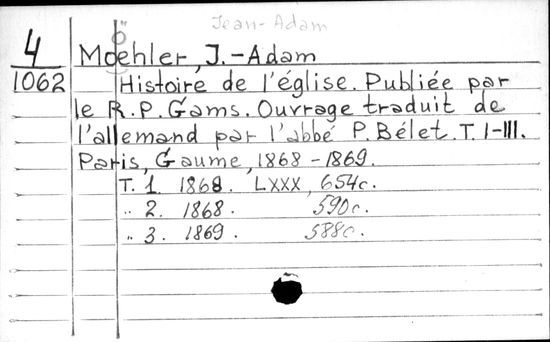 Jean-Adam
ö
4 Moehler, J.-Adam
1062 Histoire de l'église. Publiée par
le R.P. Gams. Ouvrage traduit de
l'allemand par l'abbé P. Bélet. T. I-III.
Paris, Gaume, 1868-1869.
T. 1. 1868. LXXX, 654c.
" 2. 1868. 590c.
" 3. 1869. 588c.